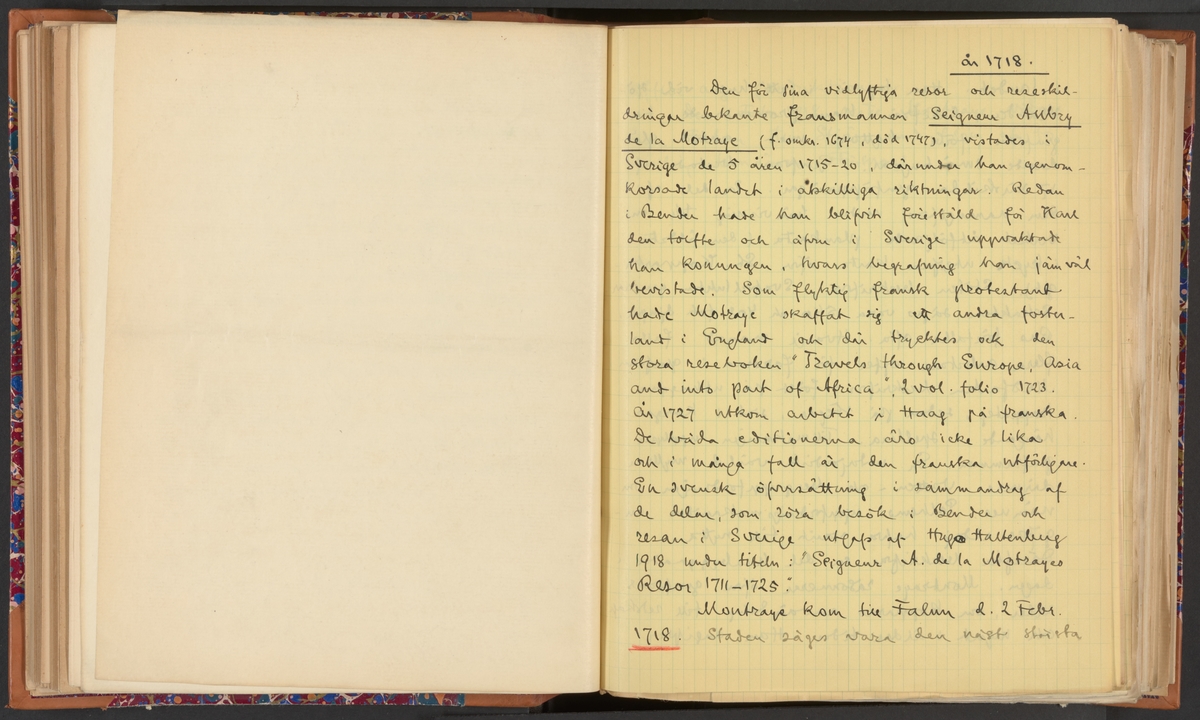 år 1718.
Den för sina vidlyftiga resor och reseskil-
dringar bekante fransmannen Seigneur Aubry
de la Motraye (f. omkr. 1674, död 1747), vistades i
Sverige de 5 åren 1715-20, därunder han genom-
korsade landet i åtskilliga riktningar. Redan
i Bender hade han blifvit föreställd för Karl
den tolfte och äfven i Sverige uppvaktade
han konungen, hvars begrafning han jämväl
bevistade. Som flyktig fransk protestant
hade Motraye skaffat sig ett andra foster-
land i England och där trycktes ock den
stora reseboken "Travels through Europe, Asia
and into part of Africa", 2 vol. folio 1723.
År 1727 utkom arbetet i Haag på franska.
De båda editionerna äro icke lika
och i många fall är den franska utförligare.
En svensk öfversättning i sammandrag af
de delar, som röra besök i Bender och
resan i Sverige utgafs af Hugo Hultenberg
1918 under titeln: "Seigneur A. de la Motrayes
Resor 1711-1725."
Montraye kom till Falun d. 2 Febr.
1718. Staden säges vara den näst största